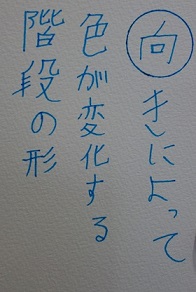 向きによって
色が変化する
階段の形